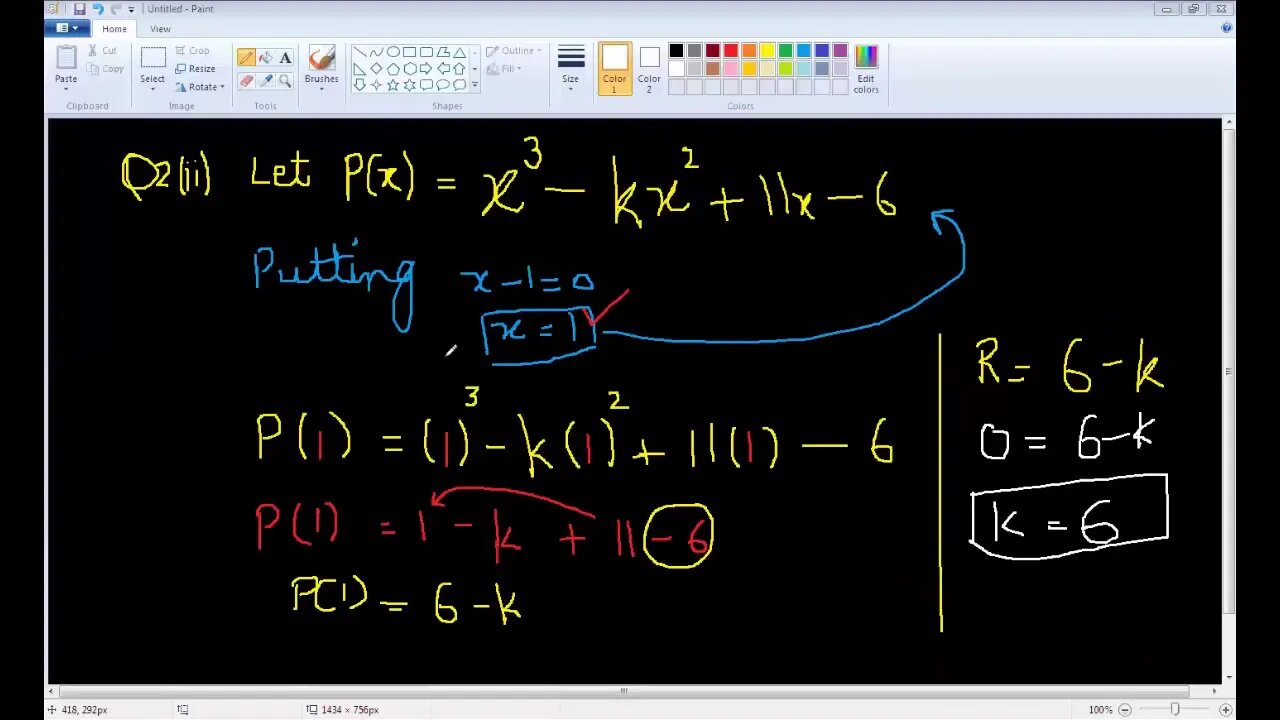 Untitled - Paint
Home View
Paste
Cut
Copy
Clipboard
Select
Crop
Resize
Rotate
Image
A
Tools
Brushes
Shapes
Outline
Fill
Size
Color 1
Color 2
Edit colors
Colors
Q2(ii) Let P(x) = x³ - kx² + 11x - 6
Putting x - 1 = 0
x = 1
P(1) = (1)³ - k(1)² + 11(1) - 6
P(1) = 1 - k + 11 - 6
P(1) = 6 - k
R = 6 - k
0 = 6 - k
k = 6
418, 292px
1434 × 756px
100%